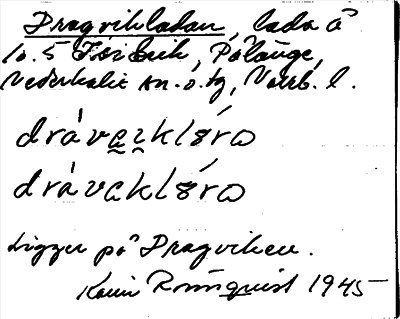 Dragvikladan, lada å
lo. 5 Försvik, Pålänge,
Nederkalix sn. o. tg, Norrb. l.
drávaɪklšra
drávaklšra
Ligger på Dragviken.
Karin Rönnquist 1945